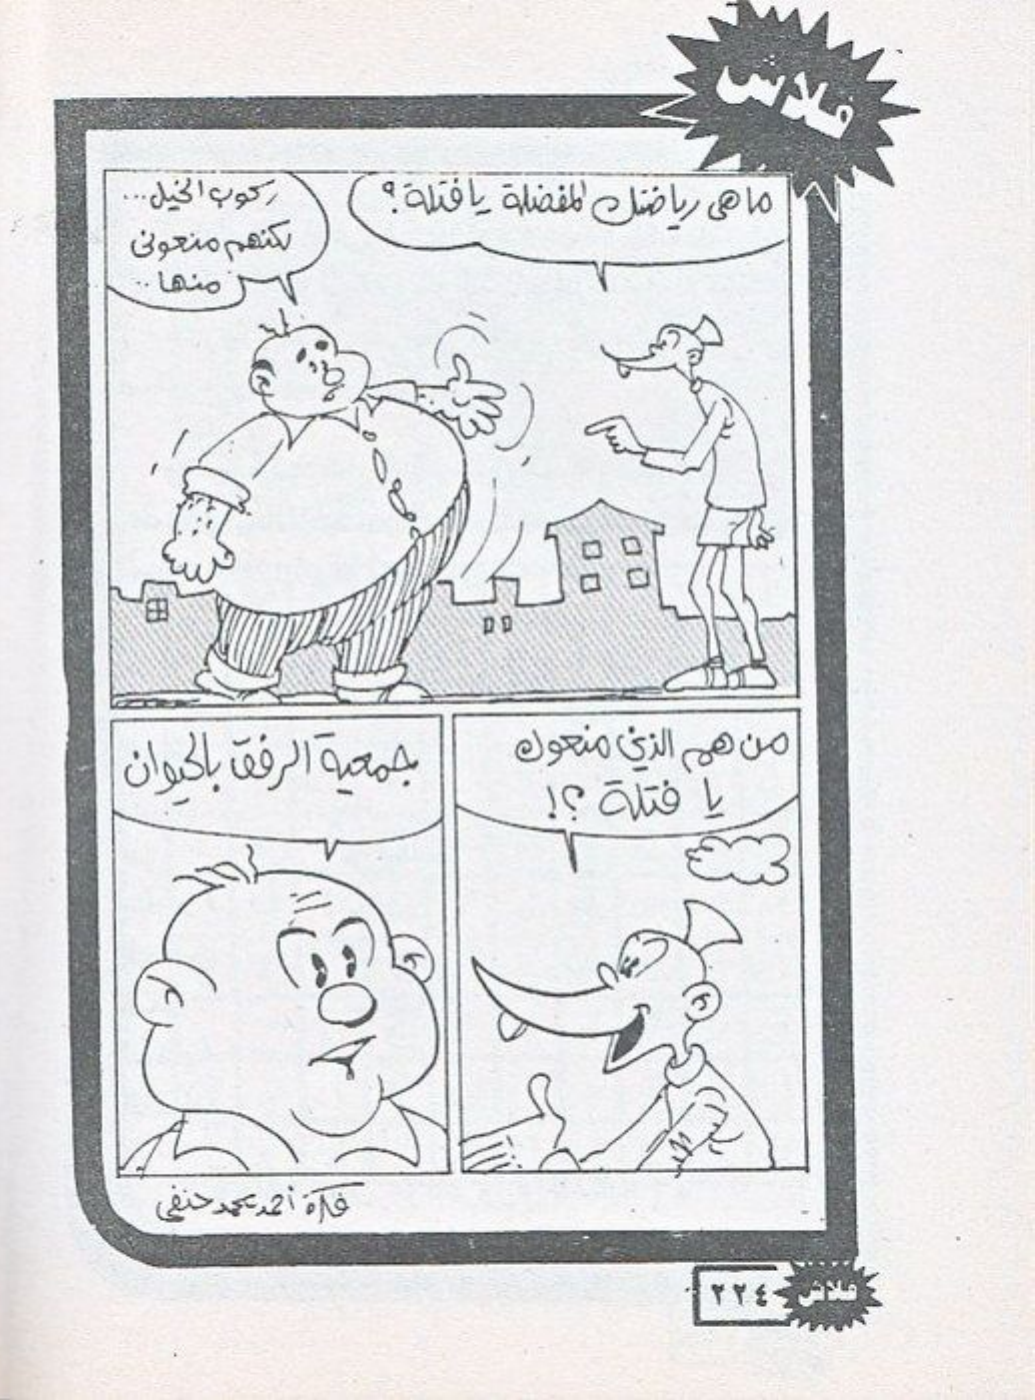 فلاش
ما هى رياضتك المفضلة يا فتلة؟
ركوب الخيل...
لكنهم منعونى
منها..
من هم الذين منعوك
يا فتلة ؟!
جمعية الرفق بالحيوان
فكرة أحمد محمد حنفى
فلاش
٢٢٤